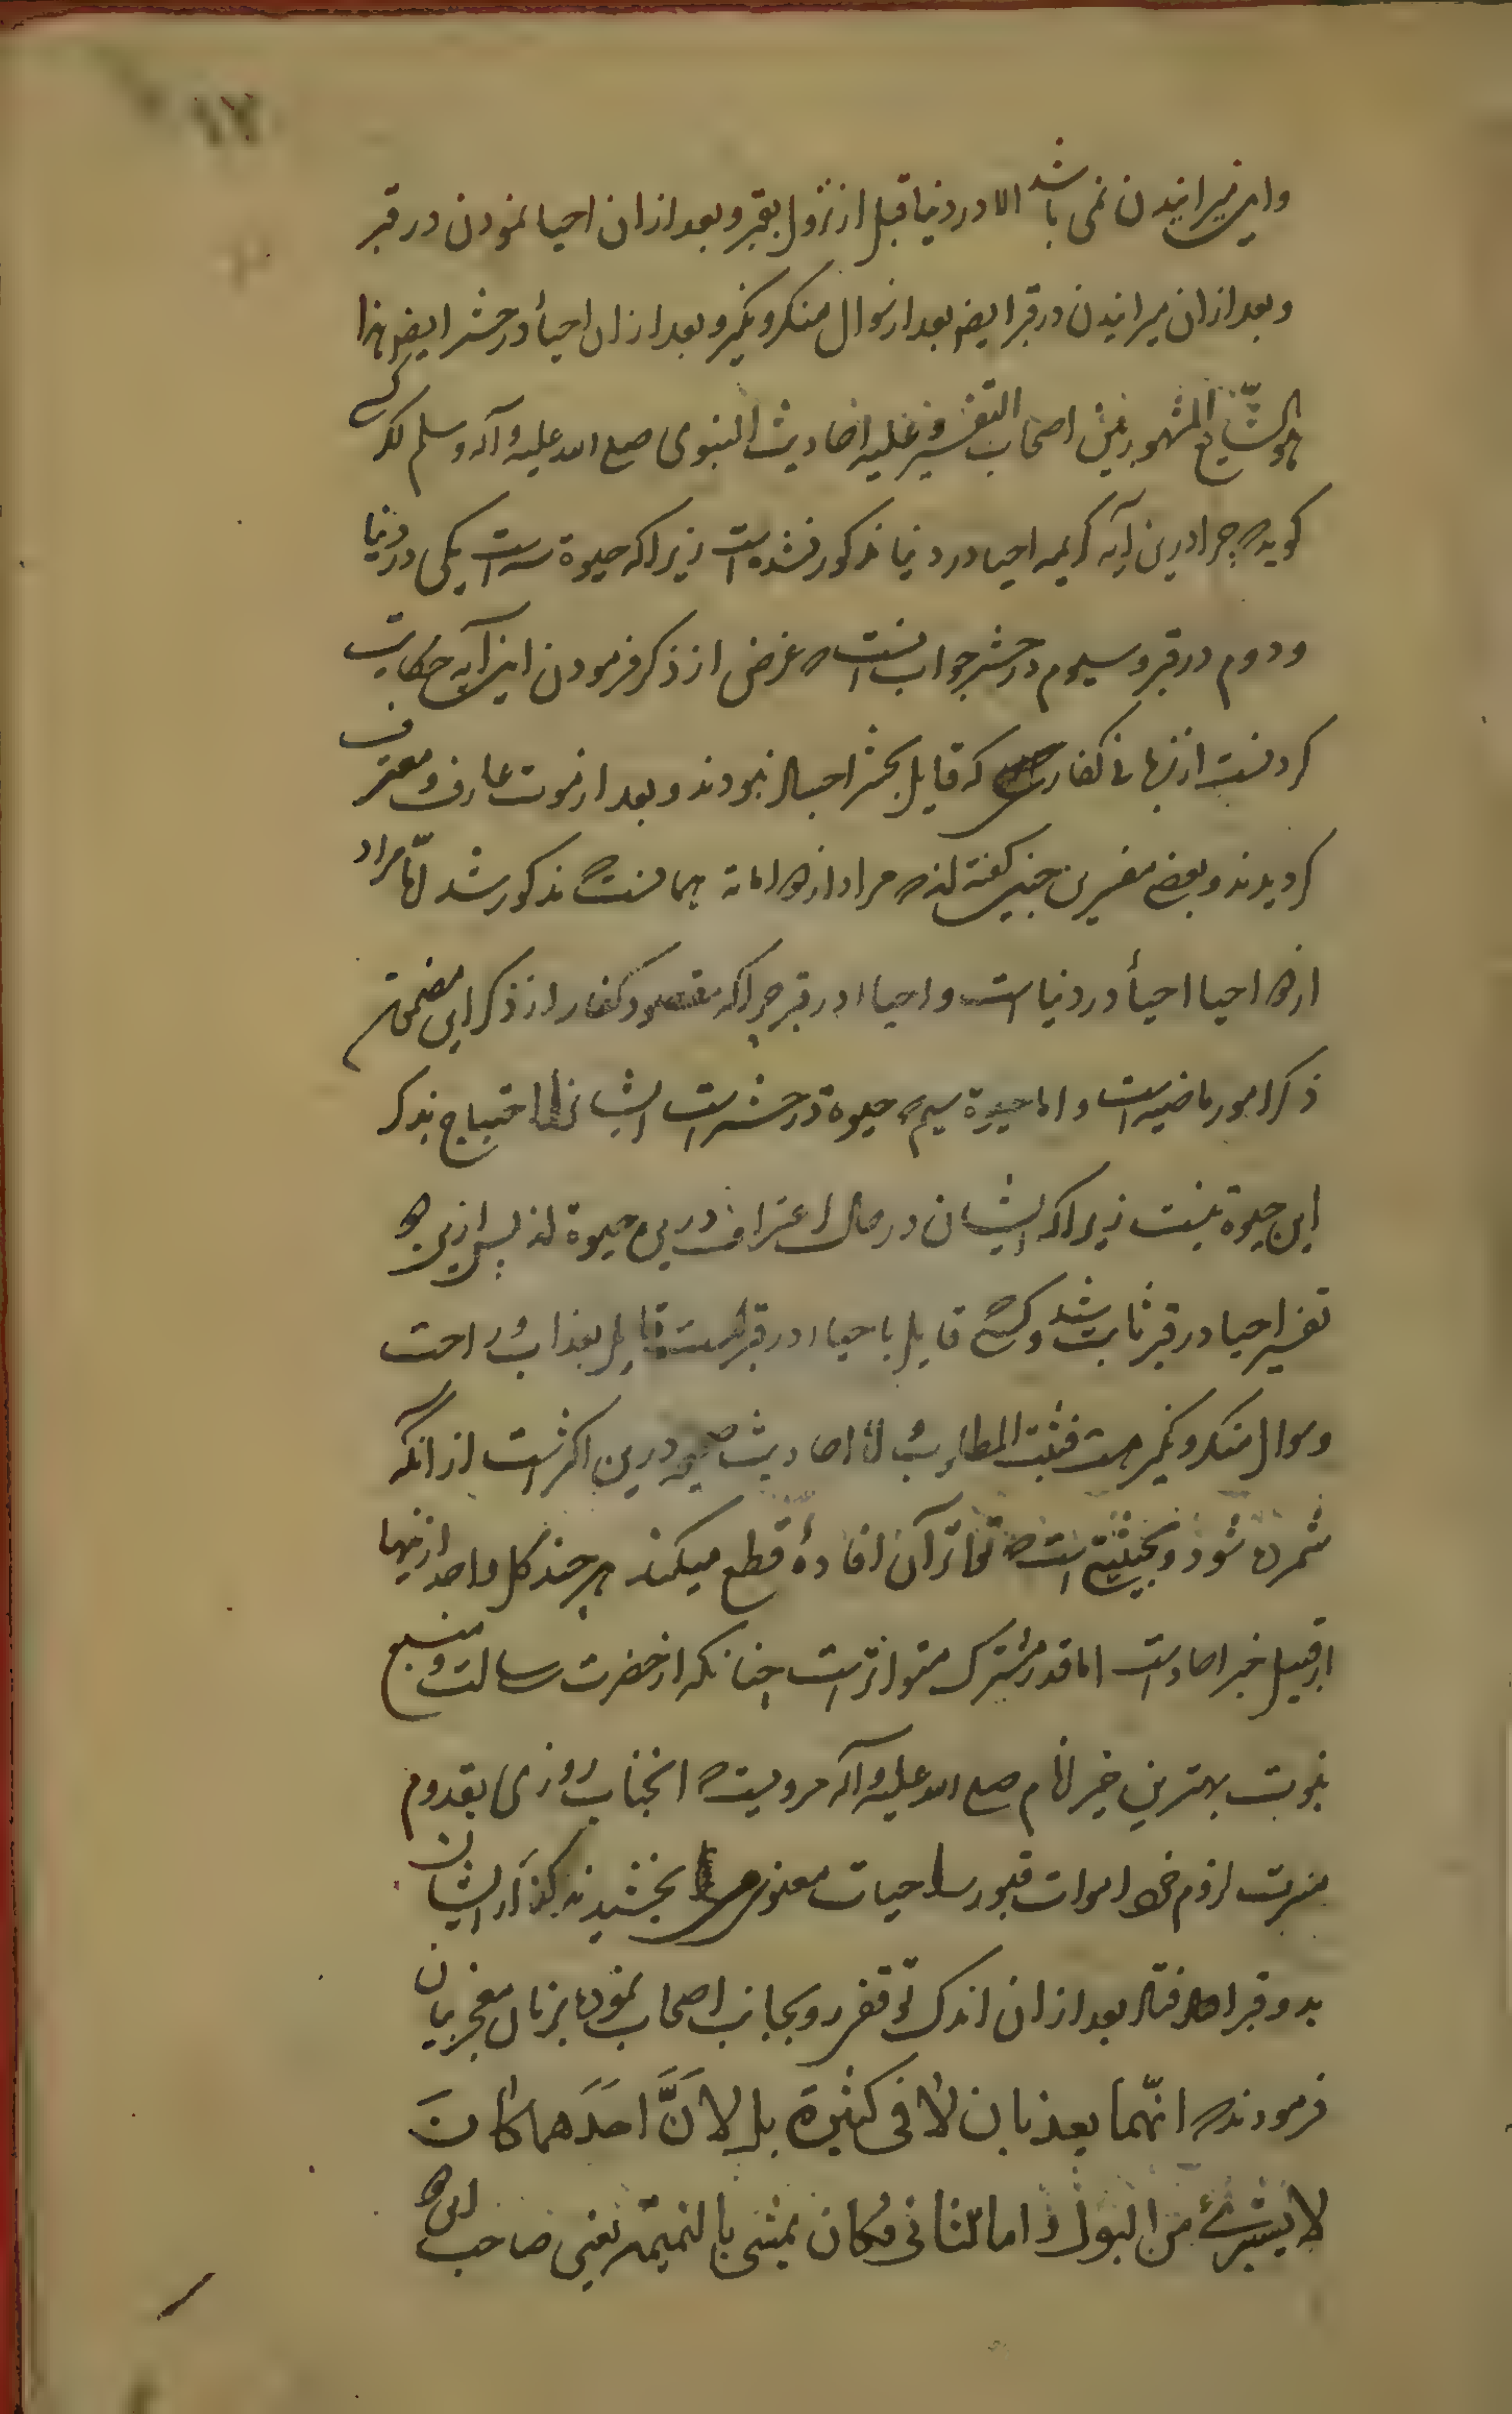 واین میرانیدن نمی باشد الا در دنیا قبل از نزول بقبر و بعد ازان احیا نمودن در قبر
و بعد ازان میرانیدن در قبر ایضا بعد از سوال منکر و نکیر و بعد ازان احیأ در حشر ایض هذا
هو الشّایع المشهور من اصحاب التفسیر و علیه احادیث النبوی صلی الله علیه و آله وسلم اگر کسی
کوید چرا درین آیه کریمه احیا در دنیا مذکور نشده است زیرا که حیوة سه است یکی در دنیا
و دوم در قبر و سیوم در حشر جواب اینست که غرض از ذکر فرمودن این آیه حکایت
کردنست از زبان کفار که قایل بحشر احیا نبودند و بعد از موت عارف و معترف
کردیدند و بعضی مفسرین چنین کفته اند که مراد از دو اماته همانست که مذکور شد امّا مراد
از دو احیا احیأ در دنیا است و احیاا در قبر چرا که مقصود کفار از ذکر این
ذکر امور ماضیه است و اما حیوة سیم که حیوة در حشر است ایشانرا احتیاج بذکر
این حیوة نیست زیرا که ایشان در حال اعتراف درین حیوة اند پس ازین دو
تفسیر احیا در قبر ثابت شد و کسی که قایل باحیاا در قبر است قایل بعذاب و راحت
و سوال منکر و نکیر هست فثبت المطلوب اما احادیث صحیحه درین اکثر است از انکه
شمرده شود و بحیثیتی است که تواتر آن افادهٔ قطع میکند هر چند کل واحد ازینها
از قبیل خبر احاد است اما قدر مشترک متواتر است چنانکه از حضرت رسالت و منبع
نبوت بهترین خیر انام صلی الله علیه و آله مرویست که انجناب روزی بقدوم
میمنت لزوم خود اموات قبور را حیات معنوی بخشیدند کذر ایشان
بدو قبر افتاد بعد ازان اندک توقف رو بجانب اصحاب نموده بزبان معجز بیان
فرمودند که انّهما یعذبان لا فی کثیرة بل لانَّ احدَهما کانَ
لا یستبرئ من البول و اما الثانی فکان یمشی بالنمیمة یعنی صاحب این دو